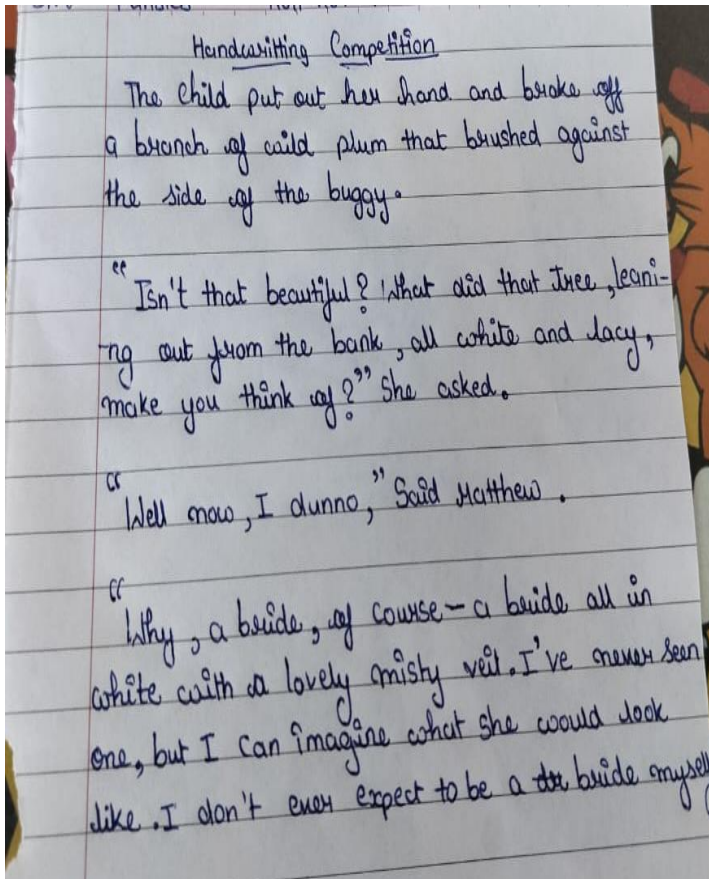 Handwritting Competition
The child put out her hand and broke off
a branch of caild plum that brushed against
the side of the buggy.
"Isn't that beautiful? What did that Tree, leani-
-ng out from the bank, all white and lacy,
make you think of?" She asked.
"Well now, I dunno," Said Matthew.
"Why, a bride, of course - a bride all in
white with a lovely misty veil. I've never seen
one, but I can imagine what she would look
like. I don't ever expect to be a bride myself